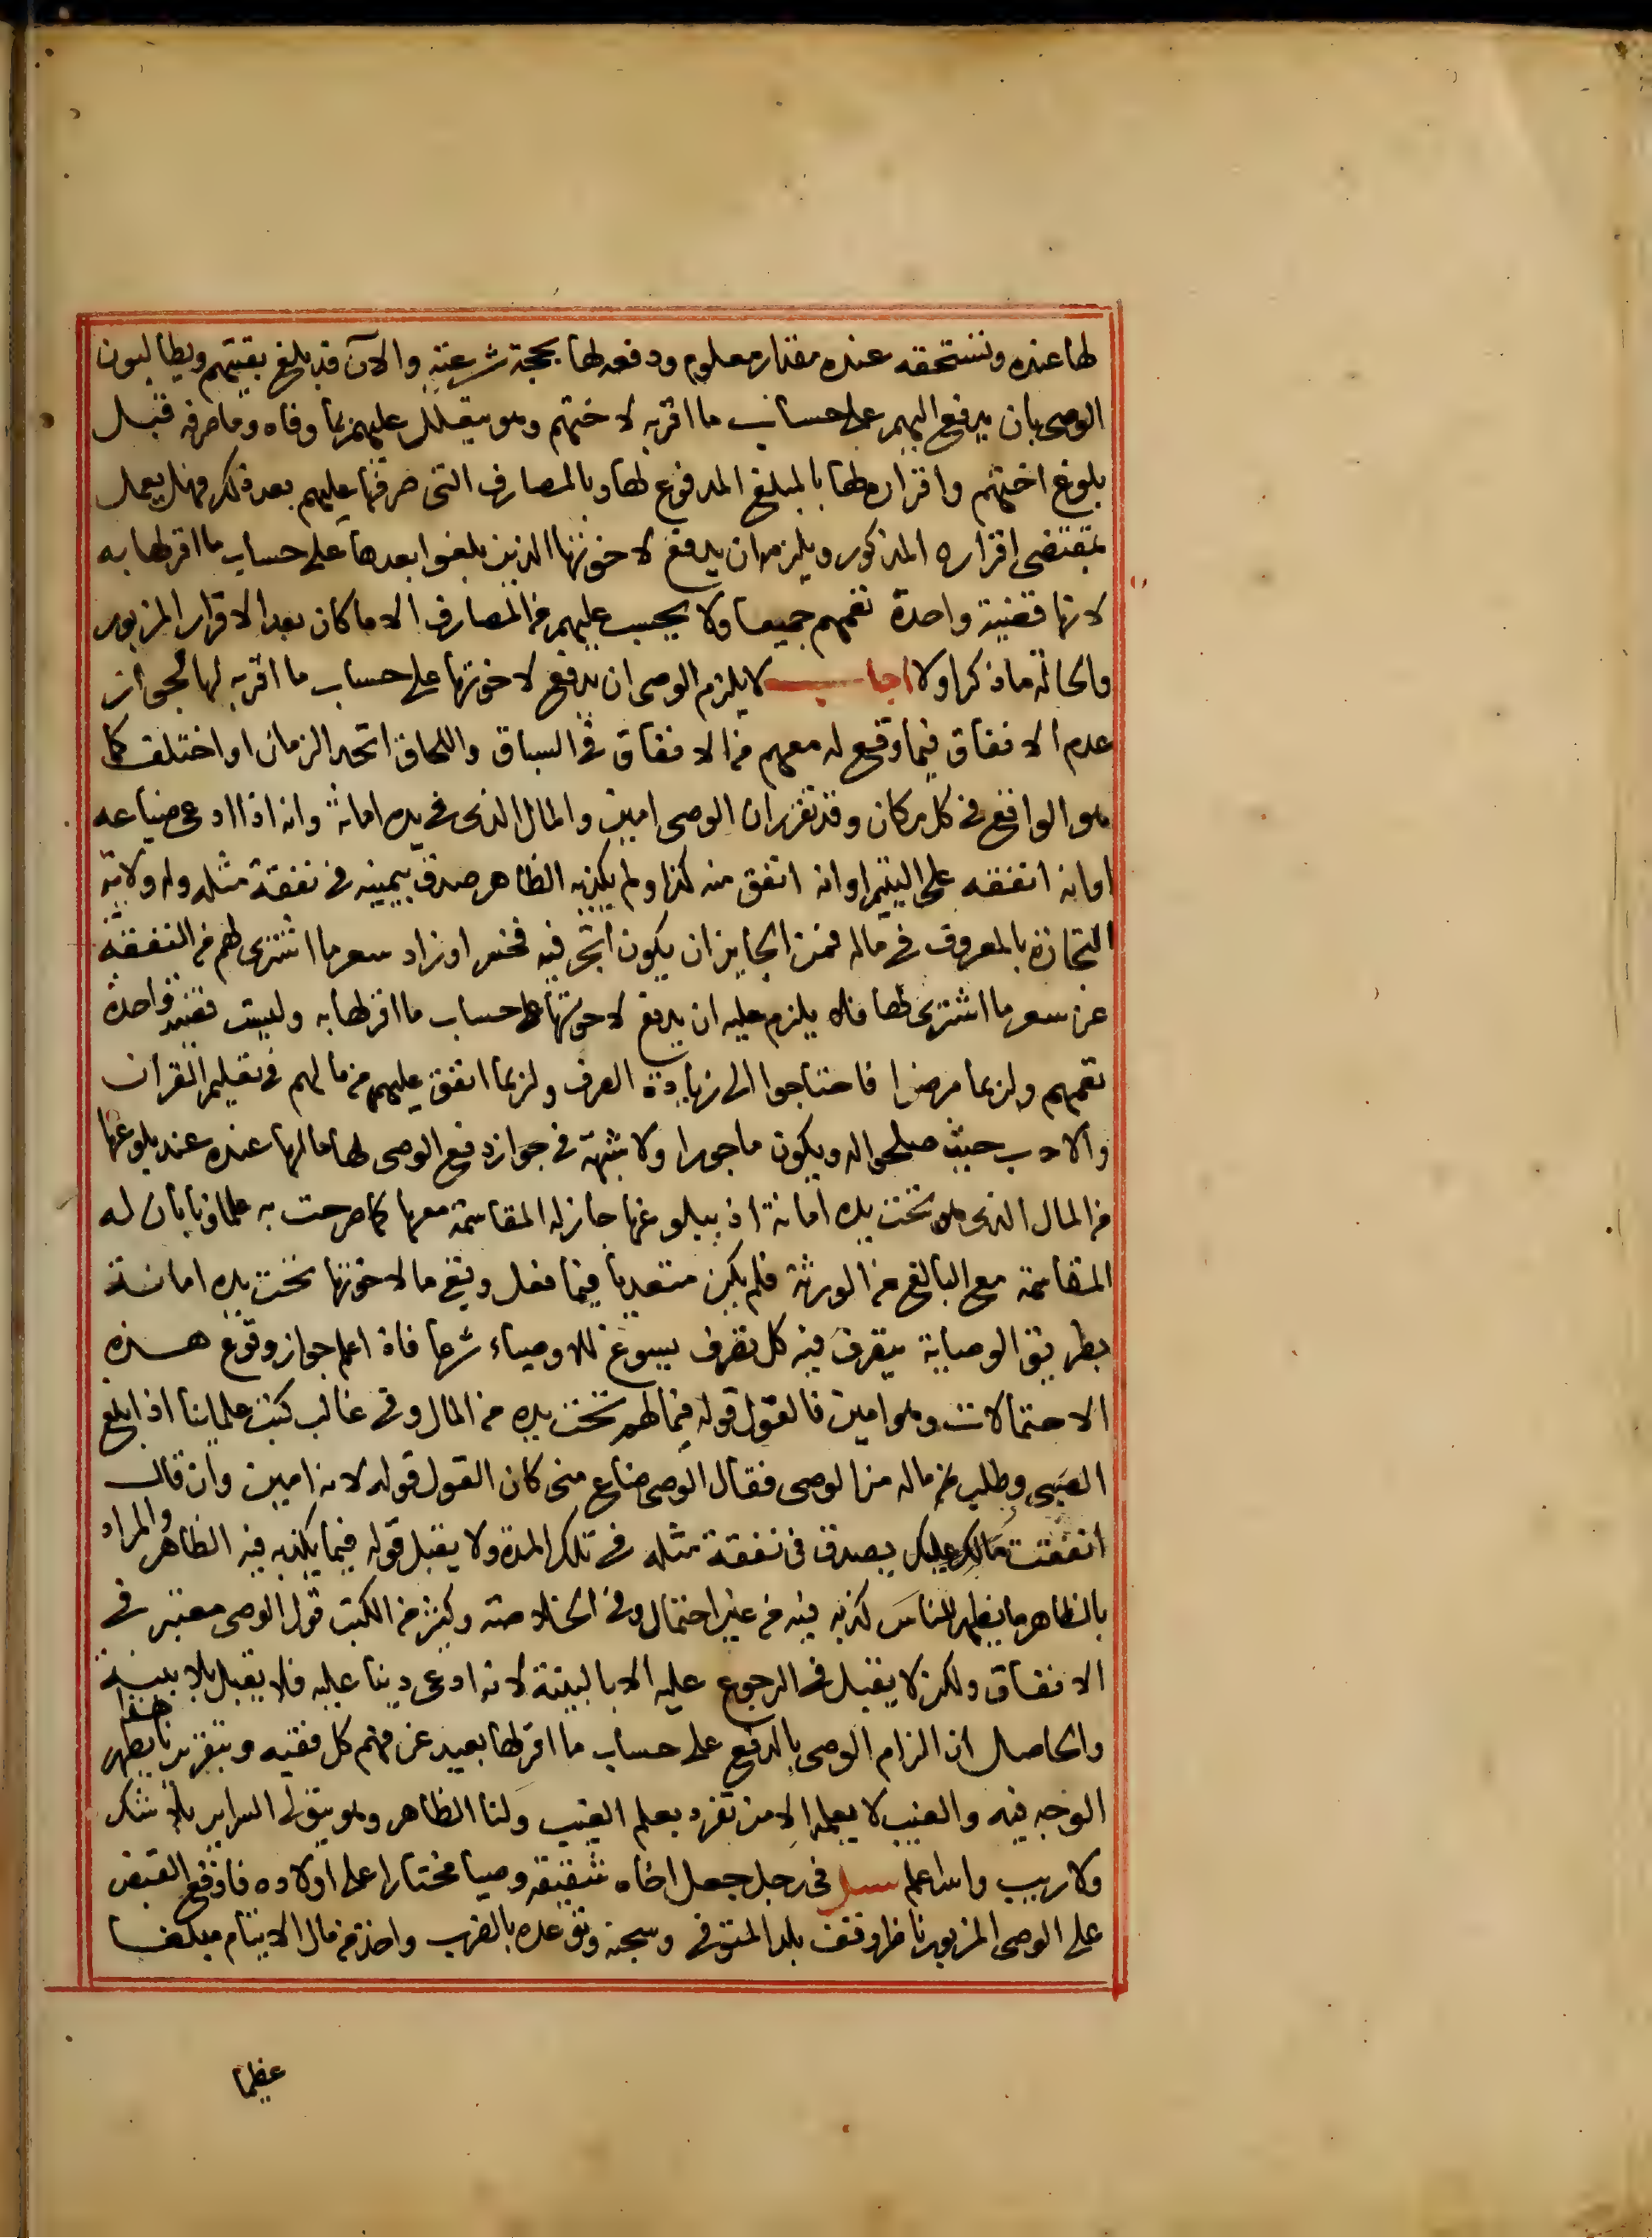 لها عنده وتستحقه عنده مقدار معلوم ودفعه لها بحجة شرعية والآن قد بلغ بقيتهم ويطالبون
الوصي بان يدفع اليهم على حساب ما اقر به لاختهم وهو يتعلل عليهم بما وفاه وما صرفه قبل
بلوغ اختهم واقراره لها بالمبلغ المدفوع لها وبالمصارف التى صرفها عليهم بعد ذلك فهل يعمل
بمقتضى اقراره المذكور ويلزمه ان يدفع لاخوتها الذين بلغوا بعدها على حساب ما اقر لها به
لانها قضية واحدة تعمهم جميعا ولا يحسب عليهم من المصارف الا ما كان بعد الاقرار المزبور
والحالة ما ذكر اولا اجاب لا يلزم الوصي ان يدفع لاخوتها على حساب ما اقر به لها لجواز
عدم الاتفاق فيما وقع له معهم من الانفاق في السباق واللحاق اتحد الزمان او اختلف كما
هو الواقع في كل مكان وقد تقرر ان الوصي امين والمال الذى في يده امانة وانه اذا ادعى ضياعه
او انه انفقه على اليتيم او انه انفق منه كذا ولم يكذبه الظاهر صدق بيمينه في نفقة مثله وله ولاية
التجارة بالمعروف في ماله فمن الجايز ان يكون اتجر فيه فخسر او زاد سعر ما اشترى لهم من النفقة
عن سعر ما اشترى لها فلا يلزم عليه ان يدفع لاخوتها على حساب ما اقر لها به وليست قضية واحدة
تعمهم ولربما مرضوا فاحتاجوا الى زيادة الصرف ولربما انفق عليهم من مالهم في تعليم القران
والادب حيث صلحوا له ويكون ماجورا ولا شبهة في جواز دفع الوصي لها مالها عنده عند بلوغها
من المال الذى هو تحت يده امانة اذ ببلوغها جاز له المقاسمة معها كما صرحت به علماؤنا بان له
المقاسمة مع البالغ من الورثة فلم يكن متعديا فيما فعل وبقي ما لاخوتها تحت يده امانة
بطريق الوصاية يتصرف فيه كل تصرف يسوغ للاوصياء شرعا فاذا علم جواز وقوع هذه
الاحتمالات وهو امين فالقول قوله فيما لهم تحت يده من المال وفي غالب كتب علمائنا اذا بلغ
الصبي وطلب ماله من الوصي فقال الوصي ضاع منى كان القول قوله لانه امين وان قال
انفقت مالك عليك يصدق في نفقة مثله في تلك المدة ولا يقبل قوله فيما يكذبه فيه الظاهر والمراد
بالظاهر ما يظهر للناس كذبه فيه من غير احتمال وفي الخلاصة وكثير من الكتب قول الوصي معتبر في
الانفاق ولكن لا يقبل في الرجوع عليه الا بالبينة لانه ادعى دينا عليه فلا يقبل بلا بينة
والحاصل ان الزام الوصي بالدفع على حساب ما اقر لها بعيد عن فهم كل فقيه وبتقريرنا هذا يظهر
الوجه فيه والغيب لا يعلمه الا من تفرد بعلم الغيب ولنا الظاهر وهو يتولى السراير بلا شك
ولا ريب والله اعلم سئل في رجل جعل اخاه شقيقه وصيا مختارا على اولاده فاوقع القبض
على الوصي المزبور ناظر وقف بلد المتوفى وسجنه وتوعده بالضرب واخذ من مال الايتام مبلغا
عظيما